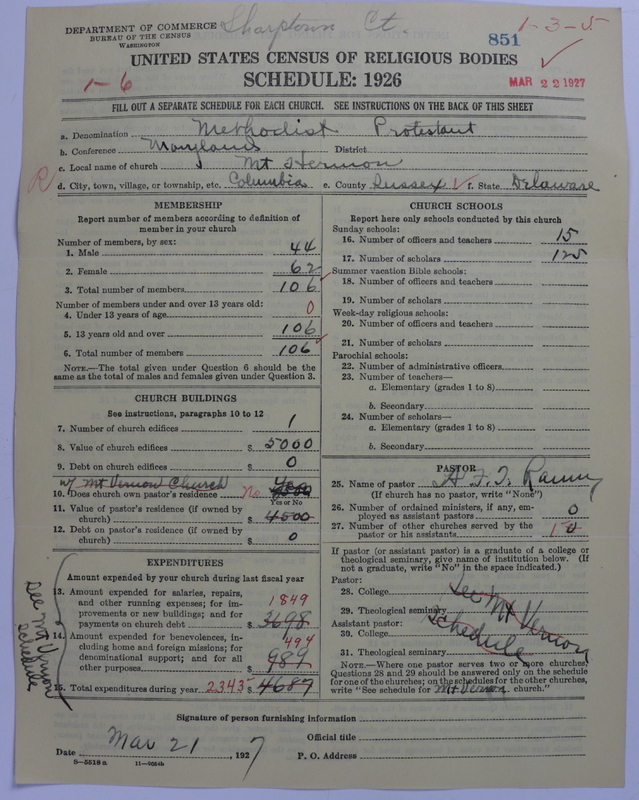 DEPARTMENT OF COMMERCE
BUREAU OF THE CENSUS
WASHINGTON
Sharptown Ct.
851
1-3-5
UNITED STATES CENSUS OF RELIGIOUS BODIES
SCHEDULE: 1926
1-6
MAR 22 1927
FILL OUT A SEPARATE SCHEDULE FOR EACH CHURCH. SEE INSTRUCTIONS ON THE BACK OF THIS SHEET
a. Denomination Methodist Protestant
b. Conference Maryland District
c. Local name of church Mt Hermon
d. City, town, village, or township, etc. Columbia e. County Sussex f. State Delaware
MEMBERSHIP
Report number of members according to definition of
member in your church
Number of members, by sex:
1. Male 44
2. Female 62
3. Total number of members 106
Number of members under and over 13 years old:
4. Under 13 years of age 0
5. 13 years old and over 106
6. Total number of members 106
NOTE.—The total given under Question 6 should be
same as the total of males and females given under Question 3.
CHURCH BUILDINGS
See instructions, paragraphs 10 to 12
7. Number of church edifices 1
8. Value of church edifices $ 5000
9. Debt on church edifices $ 0
w/ Mt Vernon Church
10. Does church own pastor's residence No
Yes or No
11. Value of pastor's residence (if owned by
church) $ 4500
12. Debt on pastor's residence (if owned by
church) $ 0
EXPENDITURES
Amount expended by your church during last fiscal year
13. Amount expended for salaries, repairs,
and other running expenses; for im-
provements or new buildings; and for
payments on church debt $ 1849 3698
14. Amount expended for benevolences, in-
cluding home and foreign missions; for
denominational support; and for all
other purposes $ 494 989
15. Total expenditures during year 2343 $ 4687
See Mt Vernon
Schedule
CHURCH SCHOOLS
Report here only schools conducted by this church
Sunday schools:
16. Number of officers and teachers 15
17. Number of scholars 125
Summer vacation Bible schools:
18. Number of officers and teachers
19. Number of scholars
Week-day religious schools:
20. Number of officers and teachers
21. Number of scholars
Parochial schools:
22. Number of administrative officers
23. Number of teachers—
a. Elementary (grades 1 to 8)
b. Secondary
24. Number of scholars—
a. Elementary (grades 1 to 8)
b. Secondary
PASTOR
25. Name of pastor
(If church has no pastor, write "None")
26. Number of ordained ministers, if any, em-
ployed as assistant pastors 0
27. Number of other churches served by the
pastor or his assistants 1 0
If pastor (or assistant pastor) is a graduate of a college or
theological seminary, give name of institution below. (If
not a graduate, write "No" in the space indicated.)
Pastor:
28. College
29. Theological seminary
Assistant pastor:
30. College
31. Theological seminary
See Mt Vernon
Schedule
NOTE.—Where one pastor serves two or more churches,
Questions 28 and 29 should be answered only on the schedule
for one of the churches; on the schedules for the other churches,
write "See schedule for Mt Vernon church."
Signature of person furnishing information
Official title
Date Mar 21, 1927
P. O. Address
8—5518 a